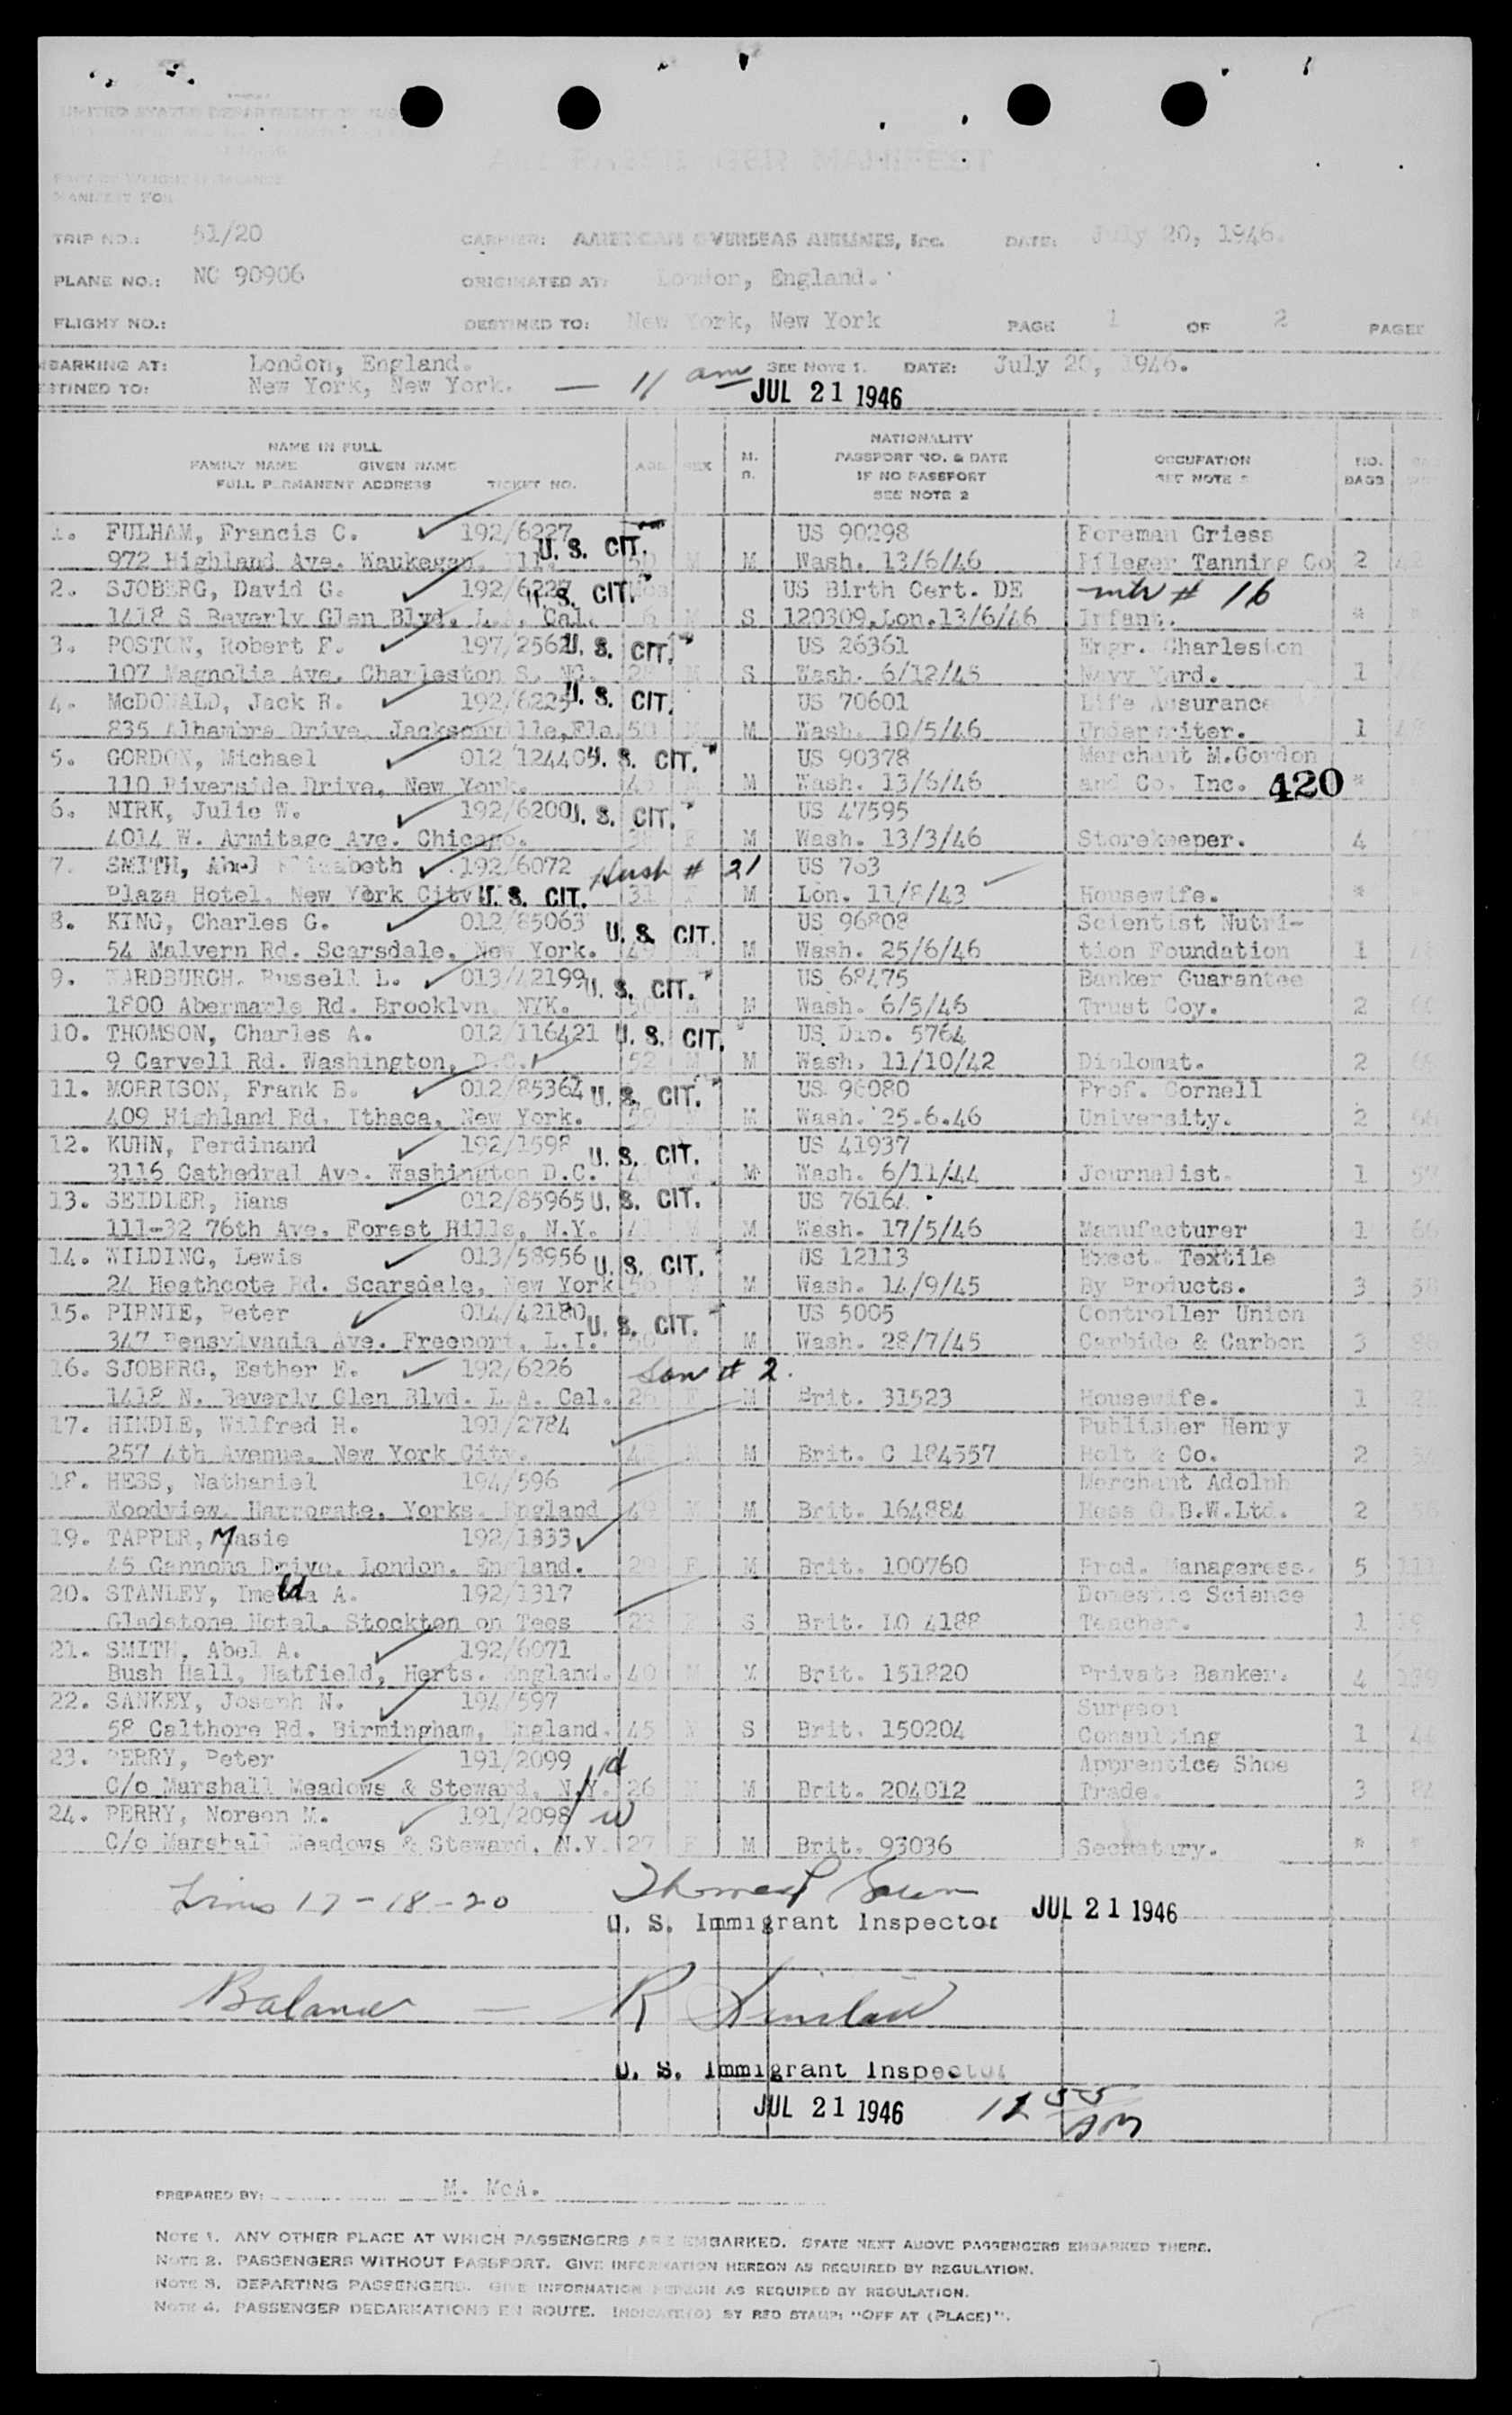 UNITED STATES DEPARTMENT OF JUS
MANIFEST FOR
TRIP NO.: 51/20 CARRIER: AMERICAN OVERSEAS AIRLINES, Inc. DATE: July 20, 1946.
PLANE NO.: NC 90906 ORIGINATED AT: London, England.
FLIGHT NO.: DESTINED TO: New York, New York PAGE 1 OF 2 PAGES
MBARKING AT: London, England. SEE NOTE 1. DATE: July 20, 1946.
STINED TO: New York, New York. — 11 am JUL 21 1946
NAME IN FULL
FAMILY NAME GIVEN NAME
FULL PERMANENT ADDRESS TICKET NO. AGE SEX M. NATIONALITY
PASSPORT NO. & DATE
IF NO PASSPORT
SEE NOTE 2 OCCUPATION
SEE NOTE NO.
BAGS
1. FULHAM, Francis C. 192/6227 U. S. CIT. US 90298 Foreman Griess
972 Highland Ave. Waukegan, Ill. 50 M M Wash. 13/6/46 Pfleger Tanning Co 2
2. SJOBERG, David G. 192/6227 U. S. CIT. US Birth Cert. DE mtr # 16
1418 S Beverly Glen Blvd. L.A. Cal. 6 M S 120309, Lon.13/6/46 Infant. *
3. POSTON, Robert F. 197/2562 U. S. CIT. US 26361 Engr. Charleston
107 Magnolia Ave. Charleston S. 28 M S Wash. 6/12/45 Navy Yard. 1
4. McDONALD, Jack R. 192/6225 U. S. CIT. US 70601 Life Assurance
835 Alhambra Drive, Jacksonville, Fla. 50 M M Wash. 10/5/46 Underwriter. 1
5. GORDON, Michael 012/124409 U. S. CIT. US 90378 Merchant M.Gordon
110 Riverside Drive, New York. M Wash. 13/6/46 and Co. Inc. 420 *
6. NIRK, Julie W. 192/6200 U. S. CIT. US 47595
4014 W. Armitage Ave. Chicago. F M Wash. 13/3/46 Storekeeper. 4
7. SMITH, Abel Elizabeth 192/6072 Husb # 21 US 763
Plaza Hotel, New York City U. S. CIT. 31 F M Lon. 11/8/43 Housewife. *
8. KING, Charles G. 012/85063 U. S. CIT. US 96808 Scientist Nutri-
54 Malvern Rd. Scarsdale, New York. 49 M M Wash. 25/6/46 tion Foundation 1
9. Russell L. 013/42199 U. S. CIT. US 68475 Banker Guarantee
1800 Abermarle Rd. Brooklyn, NYK. 50 M M Wash. 6/5/46 Trust Coy. 2
10. THOMSON, Charles A. 012/116421 U. S. CIT. US Dip. 5764
9 Carvell Rd. Washington, D.C. 52 M M Wash. 11/10/42 Diplomat. 2
11. MORRISON, Frank B. 012/85364 U. S. CIT. US 96080 Prof. Cornell
409 Highland Rd. Ithaca, New York. 59 M M Wash. 25.6.46 University. 2
12. KUHN, Ferdinand 192/1598 U. S. CIT. US 41937
3116 Cathedral Ave. Washington D.C. 41 M M Wash. 6/11/44 Journalist. 1
13. SEIDLER, Hans 012/85965 U. S. CIT. US 76164
111-32 76th Ave. Forest Hills, N.Y. 41 M M Wash. 17/5/46 Manufacturer 1
14. WILDING, Lewis 013/58956 U. S. CIT. US 12113 Exect. Textile
24 Heathcote Rd. Scarsdale, New York M Wash. 14/9/45 By Products. 3
15. PIRNIE, Peter 014/42180 U. S. CIT. US 5005 Controller Union
347 Pensylvania Ave. Freeport, L.I. 50 M M Wash. 28/7/45 Carbide & Carbon 3
16. SJOBERG, Esther E. 192/6226 Son # 2.
1418 N. Beverly Glen Blvd. L.A. Cal. 26 F M Brit. 31523 Housewife. 1
17. HINDLE, Wilfred H. 191/2784 Publisher Henry
257 4th Avenue, New York City. M M Brit. C 184557 Holt & Co. 2
18. HESS, Nathaniel 194/596 Merchant Adolph
Woodview, Harrogate, Yorks. England 49 M M Brit. 164884 Hess O.B.W.Ltd. 2
19. TAPPER, Masie 192/1833
45 Cannons Drive, London, England. 29 F M Brit. 100760 Prod. Manageress. 5
20. STANLEY, Imelda A. 192/1317 Domestic Science
Gladstone Hotel, Stockton on Tees 23 F S Brit. LO 4188 Teacher. 1
21. SMITH, Abel A. 192/6071
Bush Hall, Hatfield, Herts. England. 40 M M Brit. 151820 Private Banker. 4
22. SANKEY, Joseph N. 194/597 Surgeon
58 Calthore Rd. Birmingham, England. 45 M S Brit. 150204 Consulting 1
23. PERRY, Peter 191/2099 Apprentice Shoe
C/o Marshall Meadows & Steward, N.Y. 26 M M Brit. 204012 Trade. 3
24. PERRY, Noreen M. 191/2098 W
C/o Marshall Meadows & Steward, N.Y. 27 F M Brit. 93036 Secretary. *
Lines 17-18-20
U. S. Immigrant Inspector JUL 21 1946
Balance — R
U. S. Immigrant Inspector
JUL 21 1946 12 55 AM
PREPARED BY: M. McA.
NOTE 1. ANY OTHER PLACE AT WHICH PASSENGERS ARE EMBARKED. STATE NEXT ABOVE PASSENGERS EMBARKED THERE.
NOTE 2. PASSENGERS WITHOUT PASSPORT. GIVE INFORMATION HEREON AS REQUIRED BY REGULATION.
NOTE 3. DEPARTING PASSENGERS. GIVE INFORMATION HEREON AS REQUIRED BY REGULATION.
NOTE 4. PASSENGER DEBARKATIONS EN ROUTE. INDICATE(D) BY RED STAMP: "OFF AT (PLACE)".